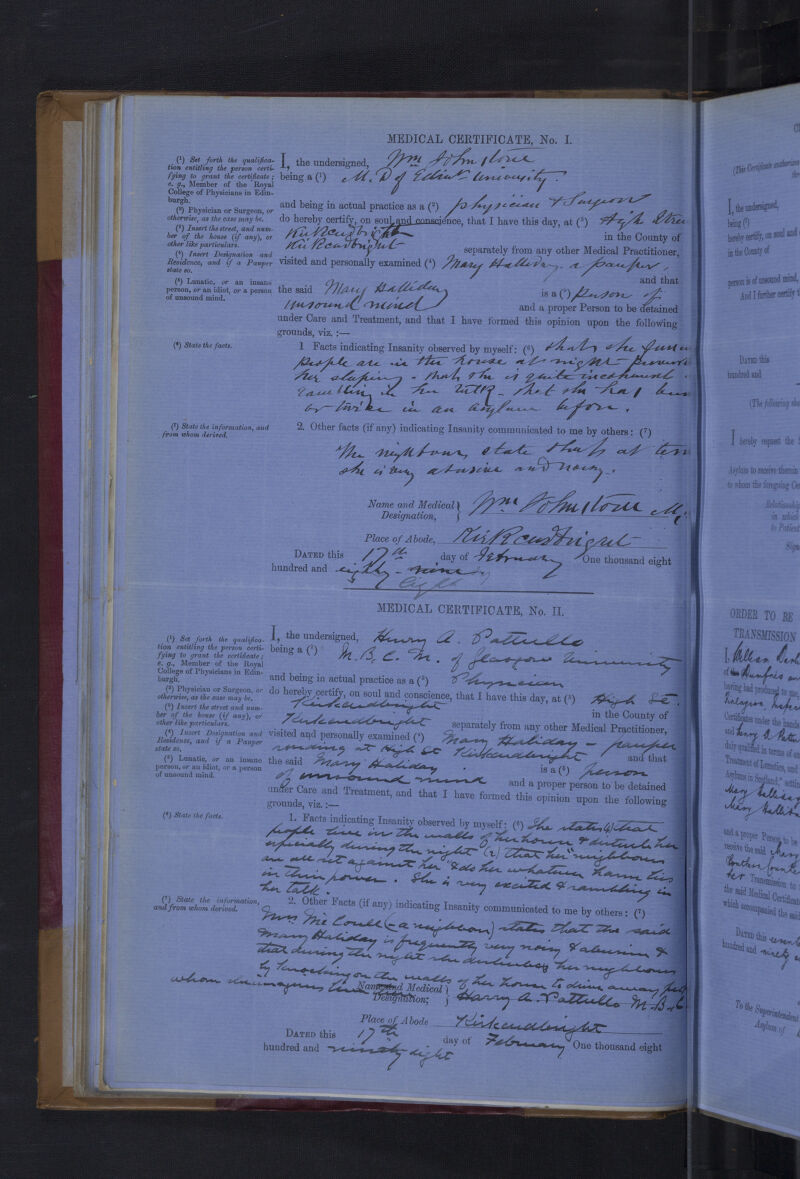 MEDICAL CERTIFICATE, No. I.
(¹) Set forth the qualifica-
tion entitling the person certi-
fying to grant the certificate;
e. g., Member of the Royal
College of Physicians in Edin-
burgh.
(²) Physician or Surgeon, or
otherwise, as the case may be.
(³) Insert the street, and num-
ber of the house (if any), or
other like particulars.
(⁴) Insert Designation and
Residence, and if a Pauper
state so.
(⁵) Lunatic, or an insane
person, or an idiot, or a person
of unsound mind.
I, the undersigned, Wm Johnstone
being a (¹) M.D of Edinr University
and being in actual practice as a (²) physician & Surgeon
do hereby certify, on soul and conscience, that I have this day, at (³) High Stree
Kirkcudbright in the County of
Kirkcudbright separately from any other Medical Practitioner,
visited and personally examined (⁴) Mary Halliday, a pauper,
and that
the said Mary Halliday is a (⁵) person of
unsound mind and a proper Person to be detained
under Care and Treatment, and that I have formed this opinion upon the following
grounds, viz. :—
(⁶) State the facts.
1 Facts indicating Insanity observed by myself: (⁶) that she
people are in the house at night
her sleeping - that she is quite incoherent
rambling in her talk - that she has been
or twice in an asylum before.
(⁷) State the information, and
from whom derived.
2. Other facts (if any) indicating Insanity communicated to me by others: (⁷)
The neighbours state that at
she is very abusive and noisy.
Name and Medical Designation, Wm Johnstone
Place of Abode, Kirkcudbright
DATED this 17th day of February One thousand eight
hundred and eighty - nine
eight
MEDICAL CERTIFICATE, No. II.
(¹) Set forth the qualifica-
tion entitling the person certi-
fying to grant the certificate;
e. g., Member of the Royal
College of Physicians in Edin-
burgh.
(²) Physician or Surgeon, or
otherwise, as the case may be.
(³) Insert the street and num-
ber of the house (if any), or
other like particulars.
(⁴) Insert Designation and
Residence, and if a Pauper
state so.
(⁵) Lunatic, or an insane
person, or an idiot, or a person
of unsound mind.
I, the undersigned, Henry A. Pattullo
being a (¹) M.B.C.M. of Glasgow University
and being in actual practice as a (²) Physician
do hereby certify, on soul and conscience, that I have this day, at (³) High St.
Kirkcudbright in the County of
Kirkcudbright separately from any other Medical Practitioner,
visited and personally examined (⁴) Mary Haliday - pauper
residing at High St Kirkcudbright and that
the said Mary Haliday is a (⁵) person
of unsound mind and a proper person to be detained
under Care and Treatment, and that I have formed this opinion upon the following
grounds, viz. :—
(⁶) State the facts.
1. Facts indicating Insanity observed by myself: (⁶) She states (1) that
people live in the walls of her house & disturb her
especially during the night (2) that her neighbours
are all set against her & do her whatever harm lies
in their power. She is very excited & rambling in
her talk.
(⁷) State the information,
and from whom derived.
2. Other Facts (if any) indicating Insanity communicated to me by others: (⁷)
Mrs McConell (- a neighbour) states that the said
Mary Haliday is frequently very noisy & abusive &
that during the night she disturbs her neighbours
by knocking on the walls of her house to drive away
whom she imagines live
Name and Medical Designation; Harry A. Pattullo M.B.
Place of Abode Kirkcudbright
DATED this 17th day of February One thousand eight
hundred and ninety eight
(This Certificate
I, the undersigned,
being (¹)
hereby certify, on soul and
in the County of
person is of unsound mind,
And I further certify
DATED this
hundred and
(The following
I hereby request the
Asylum to receive therein
to whom the foregoing
ORDER TO BE
TRANSMISSION
and a proper Person to be
receive the said
Transmission to
the said Medical Certificate
which accompanied the said
DATED this
hundred and ninety
To the Superintendent
Asylum of